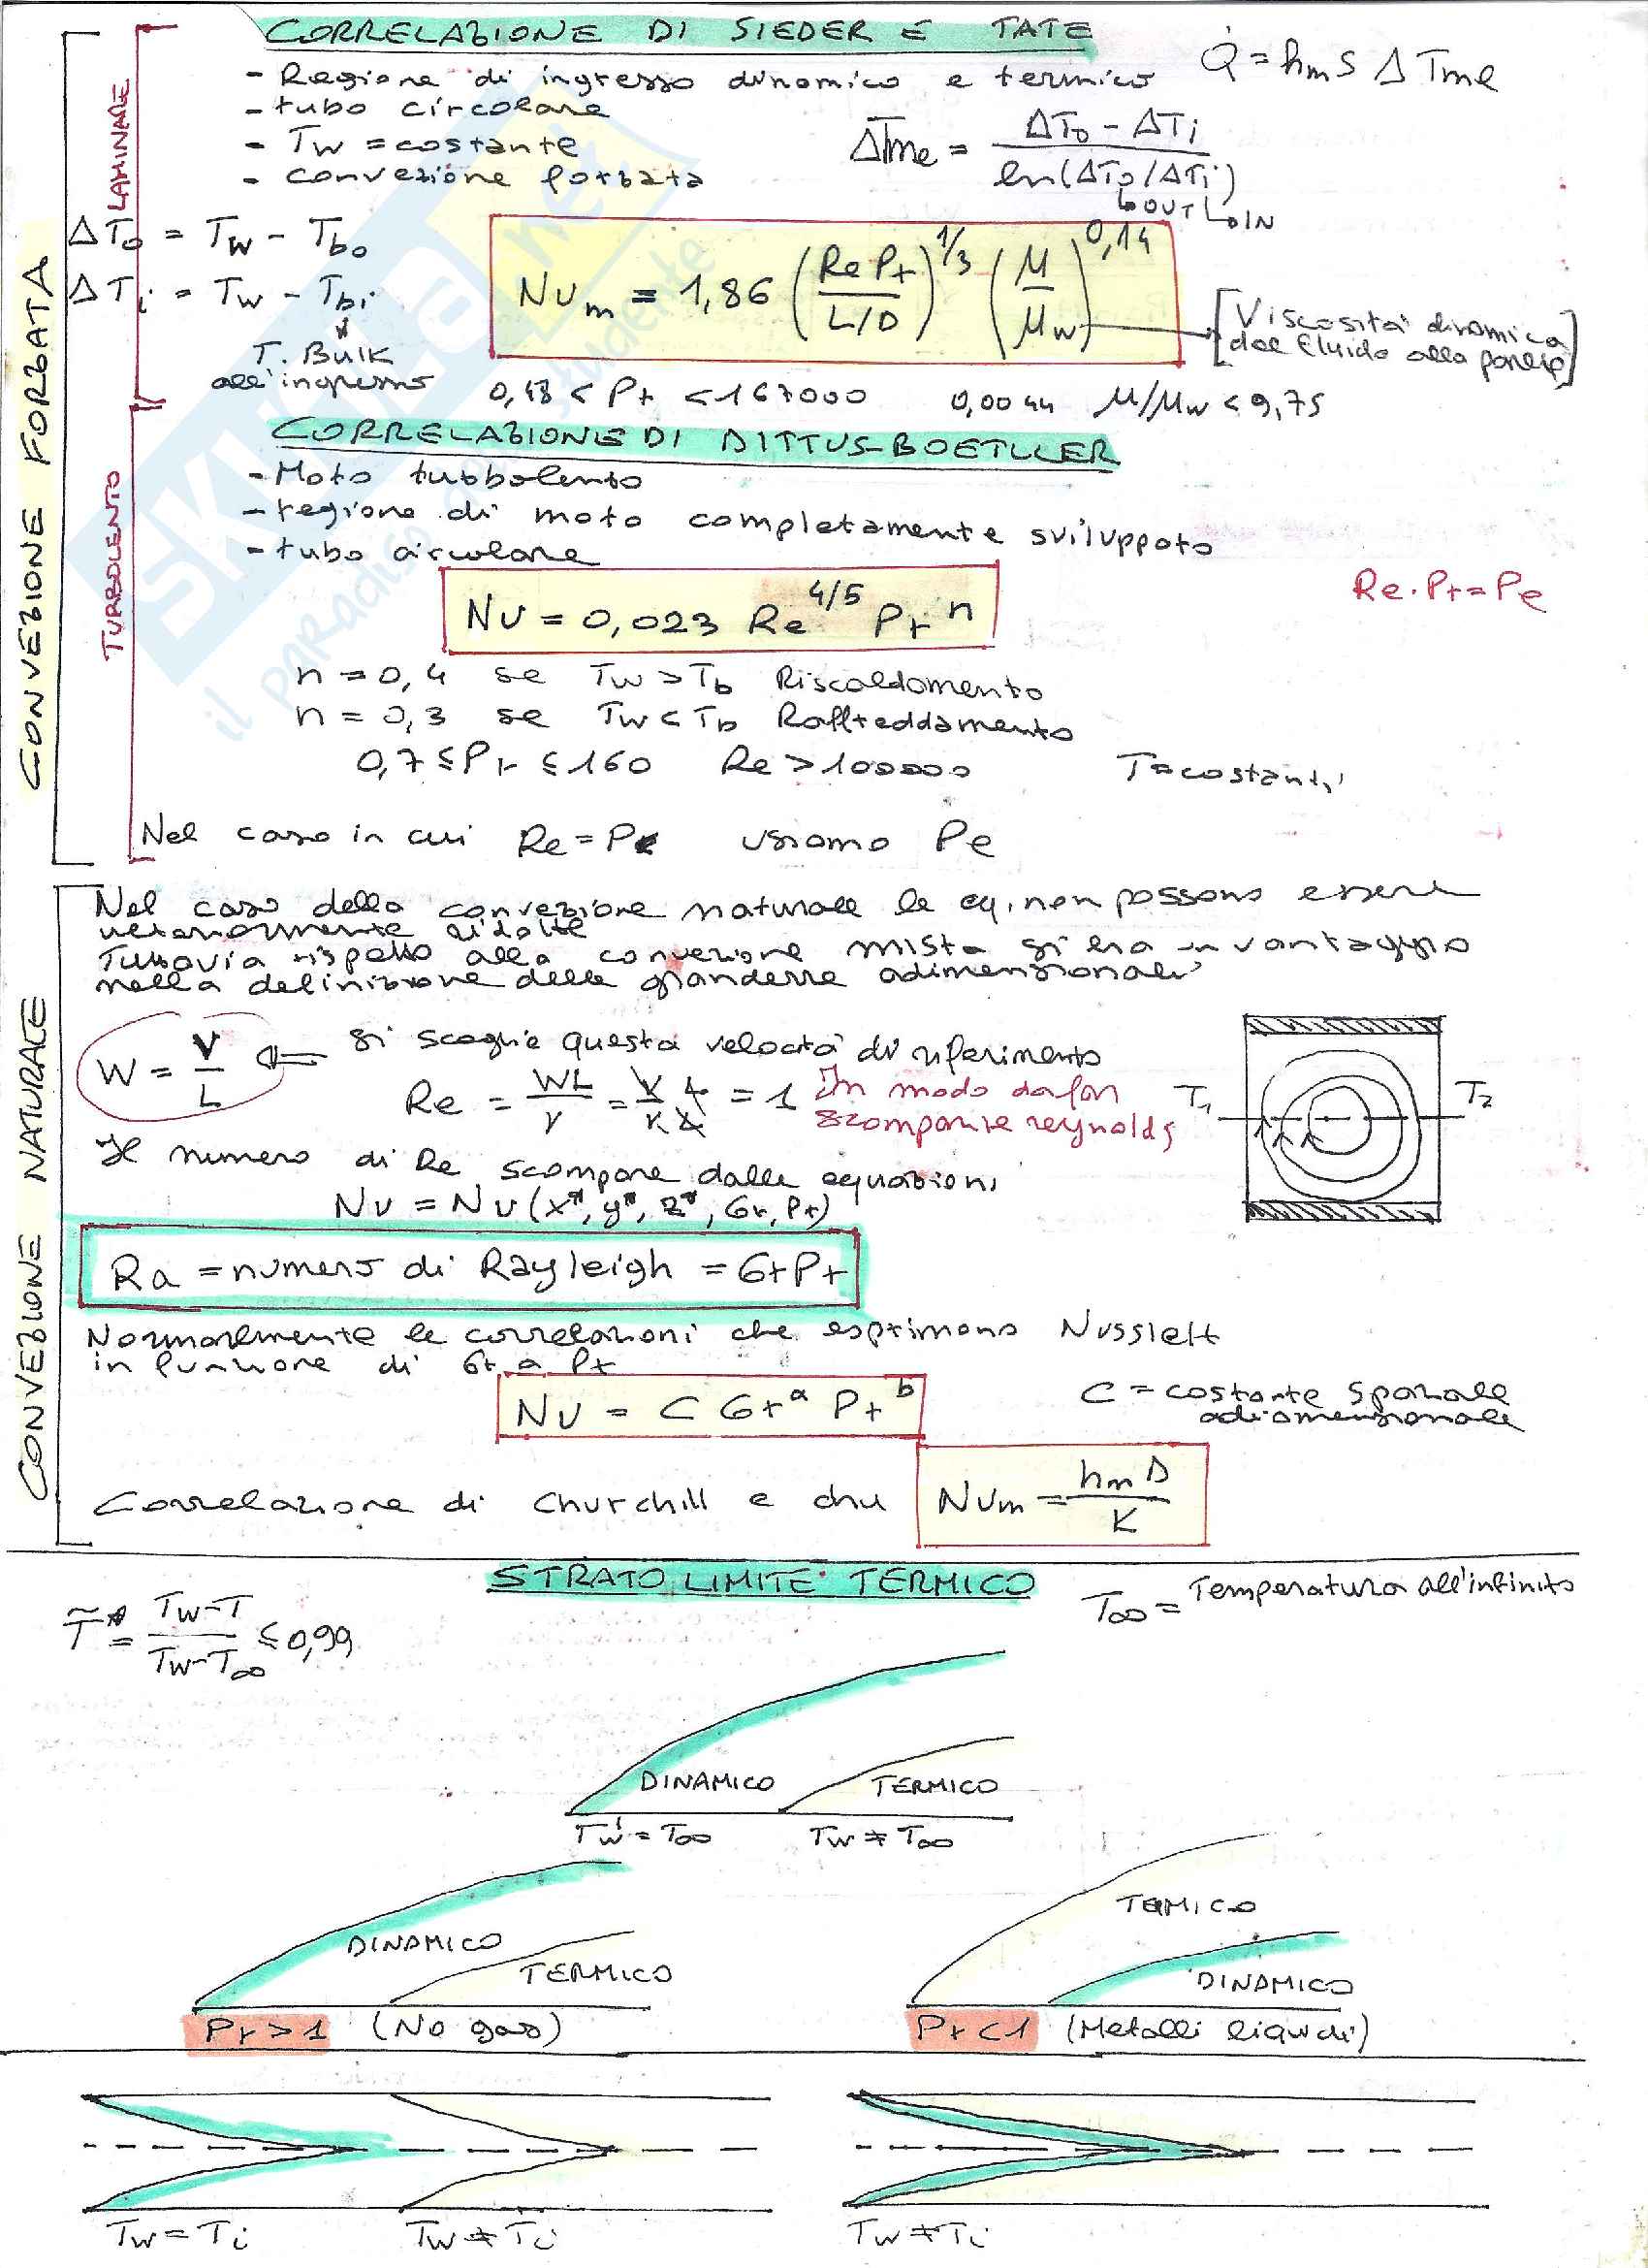 CORRELAZIONE DI SIEDER E TATE
- Regione di ingresso dinamico e termico
- tubo circolare
- Tw = costante
- convezione forzata
Q̇ = hm S ΔTme
ΔTme = (ΔTo - ΔTi) / ln(ΔTo/ΔTi)
↳OUT ↳IN
ΔTo = Tw - Tbo
ΔTi = Tw - Tbi
T. Bulk
all'ingresso
Num = 1,86 (Re Pr / L/D)^1/3 (μ/μw)^0,14
[Viscosità dinamica
del fluido alla parete]
0,48 < Pr < 167000 0,0044 μ/μw < 9,75
CONVEZIONE FORZATA
LAMINARE
TURBOLENTO
CORRELAZIONE DI DITTUS-BOETLLER
- Moto turbolento
- regione di moto completamente sviluppato
- tubo circolare
Nu = 0,023 Re^4/5 Pr^n
Re·Pr=Pe
n = 0,4 se Tw > Tb Riscaldamento
n = 0,3 se Tw < Tb Raffreddamento
0,7 ≤ Pr ≤ 160 Re > 100000 T=costanti
Nel caso in cui Re = Pe usiamo Pe
CONVEZIONE NATURALE
Nel caso della convezione naturale le eq. non possono essere
ulteriormente ridotte
Tuttavia rispetto alla convezione mista si ha un vantaggio
nella definizione delle grandezze adimensionali
W = ν/L ⇐ si scoglie questa velocità di riferimento
Re = WL/ν = = 1 In modo da far
scomparire reynolds
T1 T2
Il numero di Re scompare dalle equazioni
Nu = Nu (x*, y*, z*, Gr, Pr)
Ra = numero di Rayleigh = GrPr
Normalmente le correlazioni che esprimono Nusslelt
in funzione di Gr e Pr
Nu = C Gr^a Pr^b
C = costante spaziale
adiomensionale
Correlazione di Churchill e chu Num = hm D / K
STRATO LIMITE TERMICO
T̃* = (Tw-T)/(Tw-T∞) ≤ 0,99
T∞ = Temperatura all'infinito
DINAMICO TERMICO
Tw = T∞ Tw ≠ T∞
DINAMICO TERMICO
Pr > 1 (No gas)
TERMICO
DINAMICO
Pr < 1 (Metalli liquidi)
Tw = Ti Tw ≠ Ti Tw ≠ Ti
SKUOLA.net
il paradiso dello studente